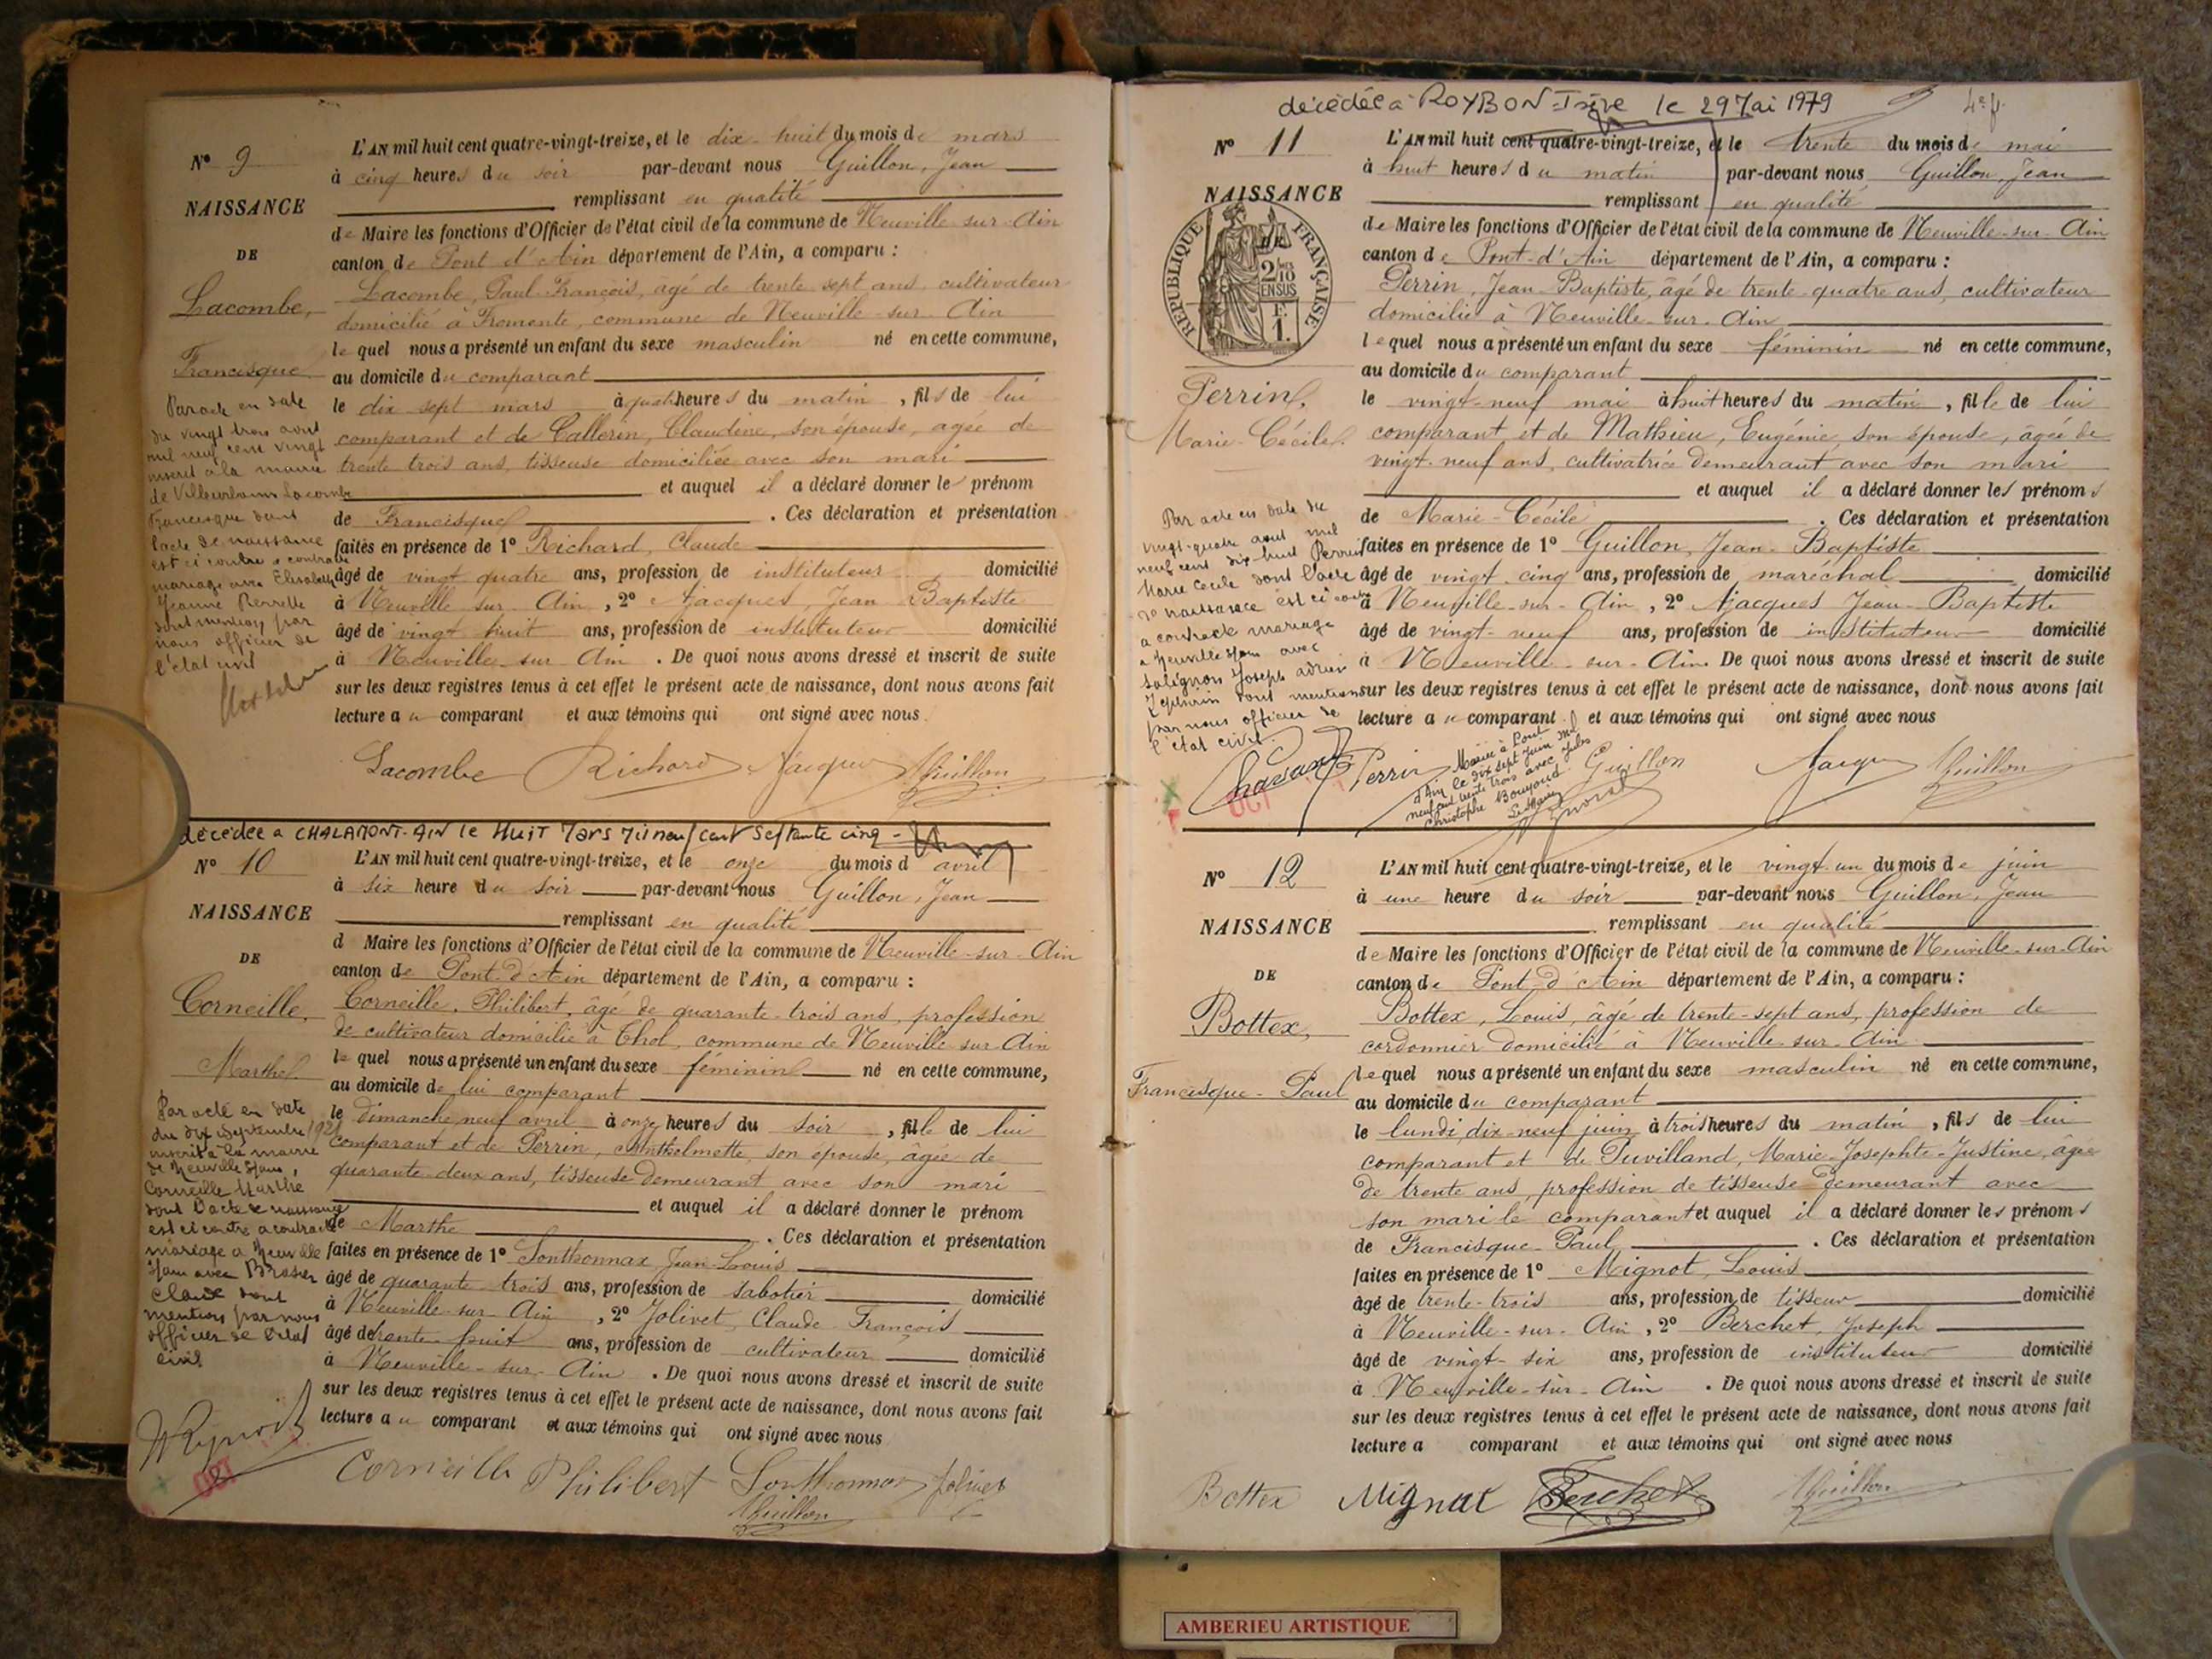 Nº 9
NAISSANCE
DE
Lacombe,
Francisque
L'AN mil huit cent quatre-vingt-treize, et le dix-huit du mois de mars
à cinq heures du soir par-devant nous Guillon, Jean
remplissant en qualité
de Maire les fonctions d'Officier de l'état civil de la commune de Neuville-sur-Ain
canton de Pont d'Ain département de l'Ain, a comparu :
Lacombe, Paul-François, âgé de trente sept ans, cultivateur
domicilié à Fromente, commune de Neuville-sur-Ain
lequel nous a présenté un enfant du sexe masculin né en cette commune,
au domicile du comparant
le dix sept mars à heures du matin, fils de lui
comparant et de Callerin, Claudine, son épouse, agée de
trente trois ans, tisseuse domiciliée avec son mari
et auquel il a déclaré donner le prénom
de Francisque. Ces déclaration et présentation
faites en présence de 1º Richard, Claude
âgé de vingt quatre ans, profession de instituteur domicilié
à Neuville sur Ain, 2º Jacques, Jean Baptiste
âgé de vingt huit ans, profession de instituteur domicilié
à Neuville sur Ain. De quoi nous avons dressé et inscrit de suite
sur les deux registres tenus à cet effet le présent acte de naissance, dont nous avons fait
lecture au comparant et aux témoins qui ont signé avec nous.
Par acte en date
du vingt trois avril
mil neuf cent vingt
inscrit à la mairie
de Villeurbanne Lacombe
Francisque dont
l'acte de naissance
est ci contre a contracté
mariage avec Elisabeth
Jeanne Perrette
dont mention par
nous officier de
l'état civil
Lacombe Richard Jacques Guillon
décédée à CHALAMONT-AIN le HUIT Mars Mil neuf cent Septante cinq -
Nº 10
NAISSANCE
DE
Corneille,
Marthe
L'AN mil huit cent quatre-vingt-treize, et le onze du mois d avril
à six heure du soir par-devant nous Guillon, Jean
remplissant en qualité
d Maire les fonctions d'Officier de l'état civil de la commune de Neuville-sur-Ain
canton de Pont-d'Ain département de l'Ain, a comparu :
Corneille, Philibert, âgé de quarante-trois ans, profession
de cultivateur domicilié à Thol, commune de Neuville-sur-Ain
lequel nous a présenté un enfant du sexe féminin né en cette commune,
au domicile de lui comparant
le dimanche neuf avril à onze heures du soir, fille de lui
comparant et de Perrin, Anthelmette, son épouse, âgée de
quarante-deux ans, tisseuse demeurant avec son mari
et auquel il a déclaré donner le prénom
de Marthe. Ces déclaration et présentation
faites en présence de 1º Sonthonnax Jean-Louis
âgé de quarante-trois ans, profession de sabotier domicilié
à Neuville-sur-Ain, 2º Jolivet, Claude-François
âgé de trente-huit ans, profession de cultivateur domicilié
à Neuville-sur-Ain. De quoi nous avons dressé et inscrit de suite
sur les deux registres tenus à cet effet le présent acte de naissance, dont nous avons fait
lecture au comparant et aux témoins qui ont signé avec nous
Par acte en date
du dix Septembre 1921
inscrit à la mairie
de Neuville s/Ain,
Corneille Marthe
dont l'acte de naissance
est ci contre a contracté
mariage à Neuville
s/Ain avec Brasier
Claude dont
mention par nous
officier de l'état
civil
Corneille Philibert Sonthonnax Jolivet
Guillon
décédée à ROYBON-Isère le 29 Mai 1979
Nº 11
NAISSANCE
DE
RÉPUBLIQUE FRANÇAISE
2/10 EN SUS
Perrin,
Marie-Cécile
L'AN mil huit cent quatre-vingt-treize, et le trente du mois de mai
à huit heures du matin par-devant nous Guillon, Jean
remplissant en qualité
de Maire les fonctions d'Officier de l'état civil de la commune de Neuville-sur-Ain
canton de Pont-d'Ain département de l'Ain, a comparu :
Perrin, Jean-Baptiste, âgé de trente-quatre ans, cultivateur
domicilié à Neuville-sur-Ain
lequel nous a présenté un enfant du sexe féminin né en cette commune,
au domicile du comparant
le vingt-neuf mai à huit heures du matin, fille de lui
comparant et de Mathieu, Eugénie, son épouse, âgée de
vingt-neuf ans, cultivatrice demeurant avec son mari
et auquel il a déclaré donner les prénoms
de Marie-Cécile. Ces déclaration et présentation
faites en présence de 1º Guillon, Jean-Baptiste
âgé de vingt-cinq ans, profession de maréchal domicilié
à Neuville-sur-Ain, 2º Jacques Jean-Baptiste
âgé de vingt-neuf ans, profession de instituteur domicilié
à Neuville-sur-Ain. De quoi nous avons dressé et inscrit de suite
sur les deux registres tenus à cet effet le présent acte de naissance, dont nous avons fait
lecture au comparant et aux témoins qui ont signé avec nous
Par acte en date du
vingt-quatre aout mil
neuf cent dix-huit Perrin
Marie Cécile dont l'acte
de naissance est ci contre
a contracté mariage
à Neuville s/Ain avec
Salignon Joseph Adrien
dont mention
par nous officier de
l'état civil.
Perrin Guillon Jacques Guillon
Mariée à Pont
d'Ain le dix sept Juin mil
neuf cent trente trois avec Jules
Christophe Bouyoud
Le Maire
Nº 12
NAISSANCE
DE
Bottex,
Francisque-Paul
L'AN mil huit cent quatre-vingt-treize, et le vingt-un du mois de juin
à une heure du soir par-devant nous Guillon, Jean
remplissant en qualité
de Maire les fonctions d'Officier de l'état civil de la commune de Neuville-sur-Ain
canton de Pont-d'Ain département de l'Ain, a comparu :
Bottex, Louis, âgé de trente-sept ans, profession de
cordonnier domicilié à Neuville-sur-Ain
lequel nous a présenté un enfant du sexe masculin né en cette commune,
au domicile du comparant
le lundi, dix-neuf juin à trois heures du matin, fils de lui
comparant et de Puvilland, Marie-Josephte-Justine, âgée
de trente ans, profession de tisseuse demeurant avec
son mari le comparant et auquel il a déclaré donner les prénoms
de Francisque-Paul. Ces déclaration et présentation
faites en présence de 1º Mignot, Louis
âgé de trente-trois ans, profession de tisseur domicilié
à Neuville-sur-Ain, 2º Berchet, Joseph
âgé de vingt-six ans, profession de instituteur domicilié
à Neuville-sur-Ain. De quoi nous avons dressé et inscrit de suite
sur les deux registres tenus à cet effet le présent acte de naissance, dont nous avons fait
lecture a comparant et aux témoins qui ont signé avec nous
Bottex Mignot Berchet Guillon
AMBERIEU ARTISTIQUE